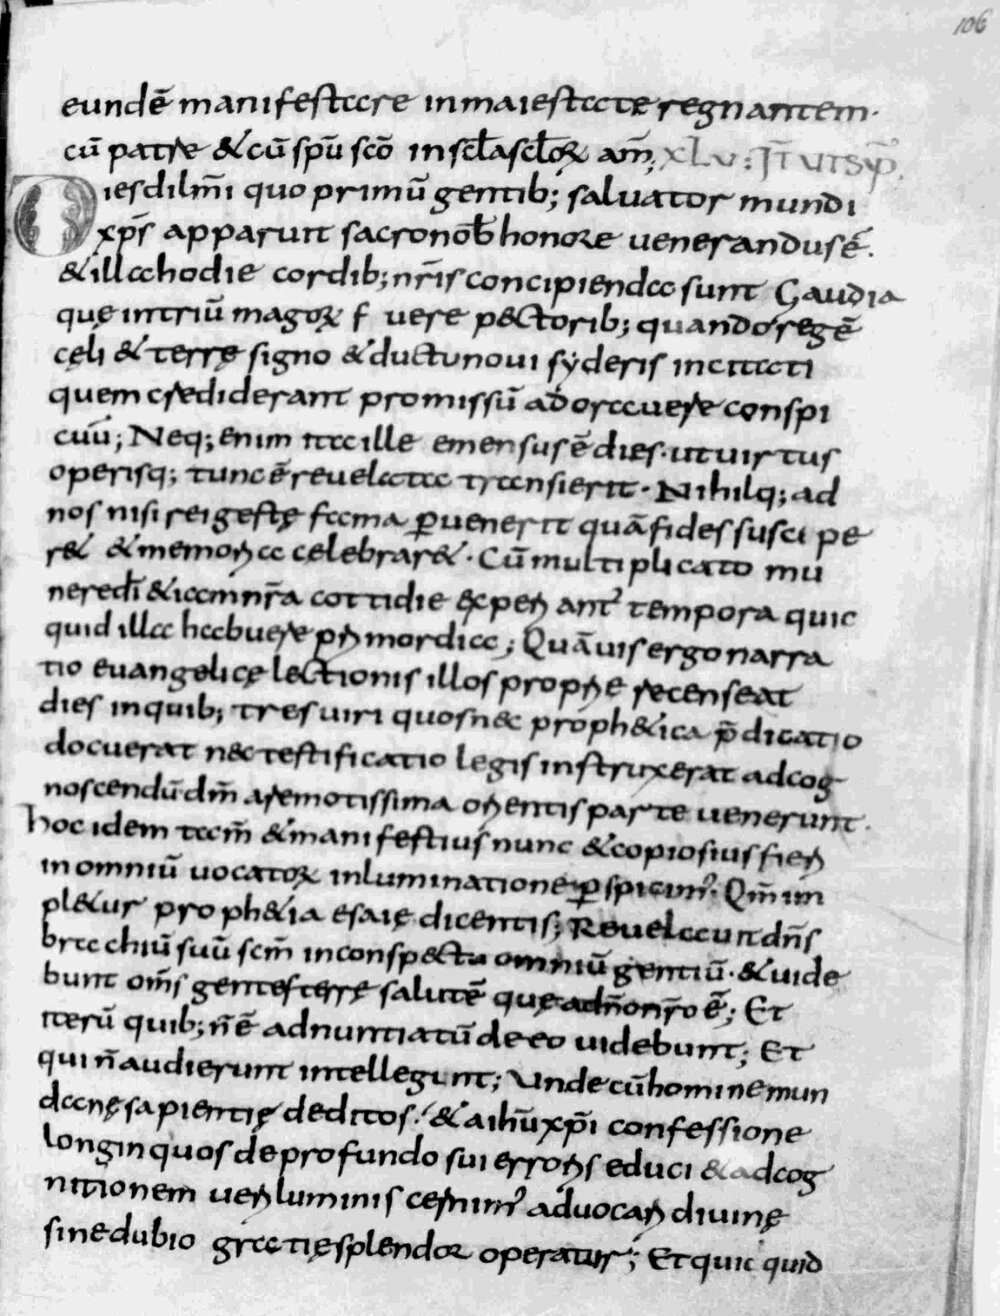 106
eundē manifestare inmaiestate regnantem·
cū patre &cū spū scō insclasclorꝝ am̄; XLV: IT̄ VTSVP̄.
Diesdilm̄i quo primū gentib; saluator mundi
xp̄s apparuit sacronob̄ honore uenerandusē.
&illa hodie cordib; nr̄is concipienda sunt Gaudia
quę intriū magoꝝ f uere pectorib; quando regē
cęli & terrę signo &ductunoui syderis incitati
quem crediderant promissū adorauere conspi
cuū; Neq; enim ita ille emensusē dies· utuirtus
operisq; tunc ē reuelata transierit· Nihilq; ad
nos nisi rei gestę fama ꝑuenerit quā fides susci pe
r& &memoria celebrar&· Cū multiplicato mu
neredī &iamnr̄a cottidie experiant᾽ tempora quic
quid illa habuere primordia; Quāuis ergo narra
tio euangelicę lectionis illos proprię recenseat
dies inquib; tres uiri quos nec proph&ica p̄dicatio
docuerat nec testificatio legis instruxerat adcog
noscendū dm̄ aremotissima orientis parte uenerunt.
hoc idem tam̄ &manifestius nunc &copiosius fieri
inomniū uocatoꝝ inluminatione ꝑspicim᾽. Qm̄ im
pl&ur proph&ia esaię dicentis; Reuelauit dn̄s
brachiū suū scm̄ inconspectu omniū gentiū· &uide
bunt om̄s gentes terrę salutē quę adn̄onr̄o ē; Et
iterū quib; n̄ ē adnuntiatū de eo uidebunt; Et
qui n̄ audierunt intellegunt; Vnde cū homine mun
danę sapientię deditos· &aihū xp̄i confessione
longinquos de profundo sui erroris educi &adcog
nitionem ueri luminis cernim᾽ aduocari diuinę
sine dubio gratię splendor operatur; Et quic quid